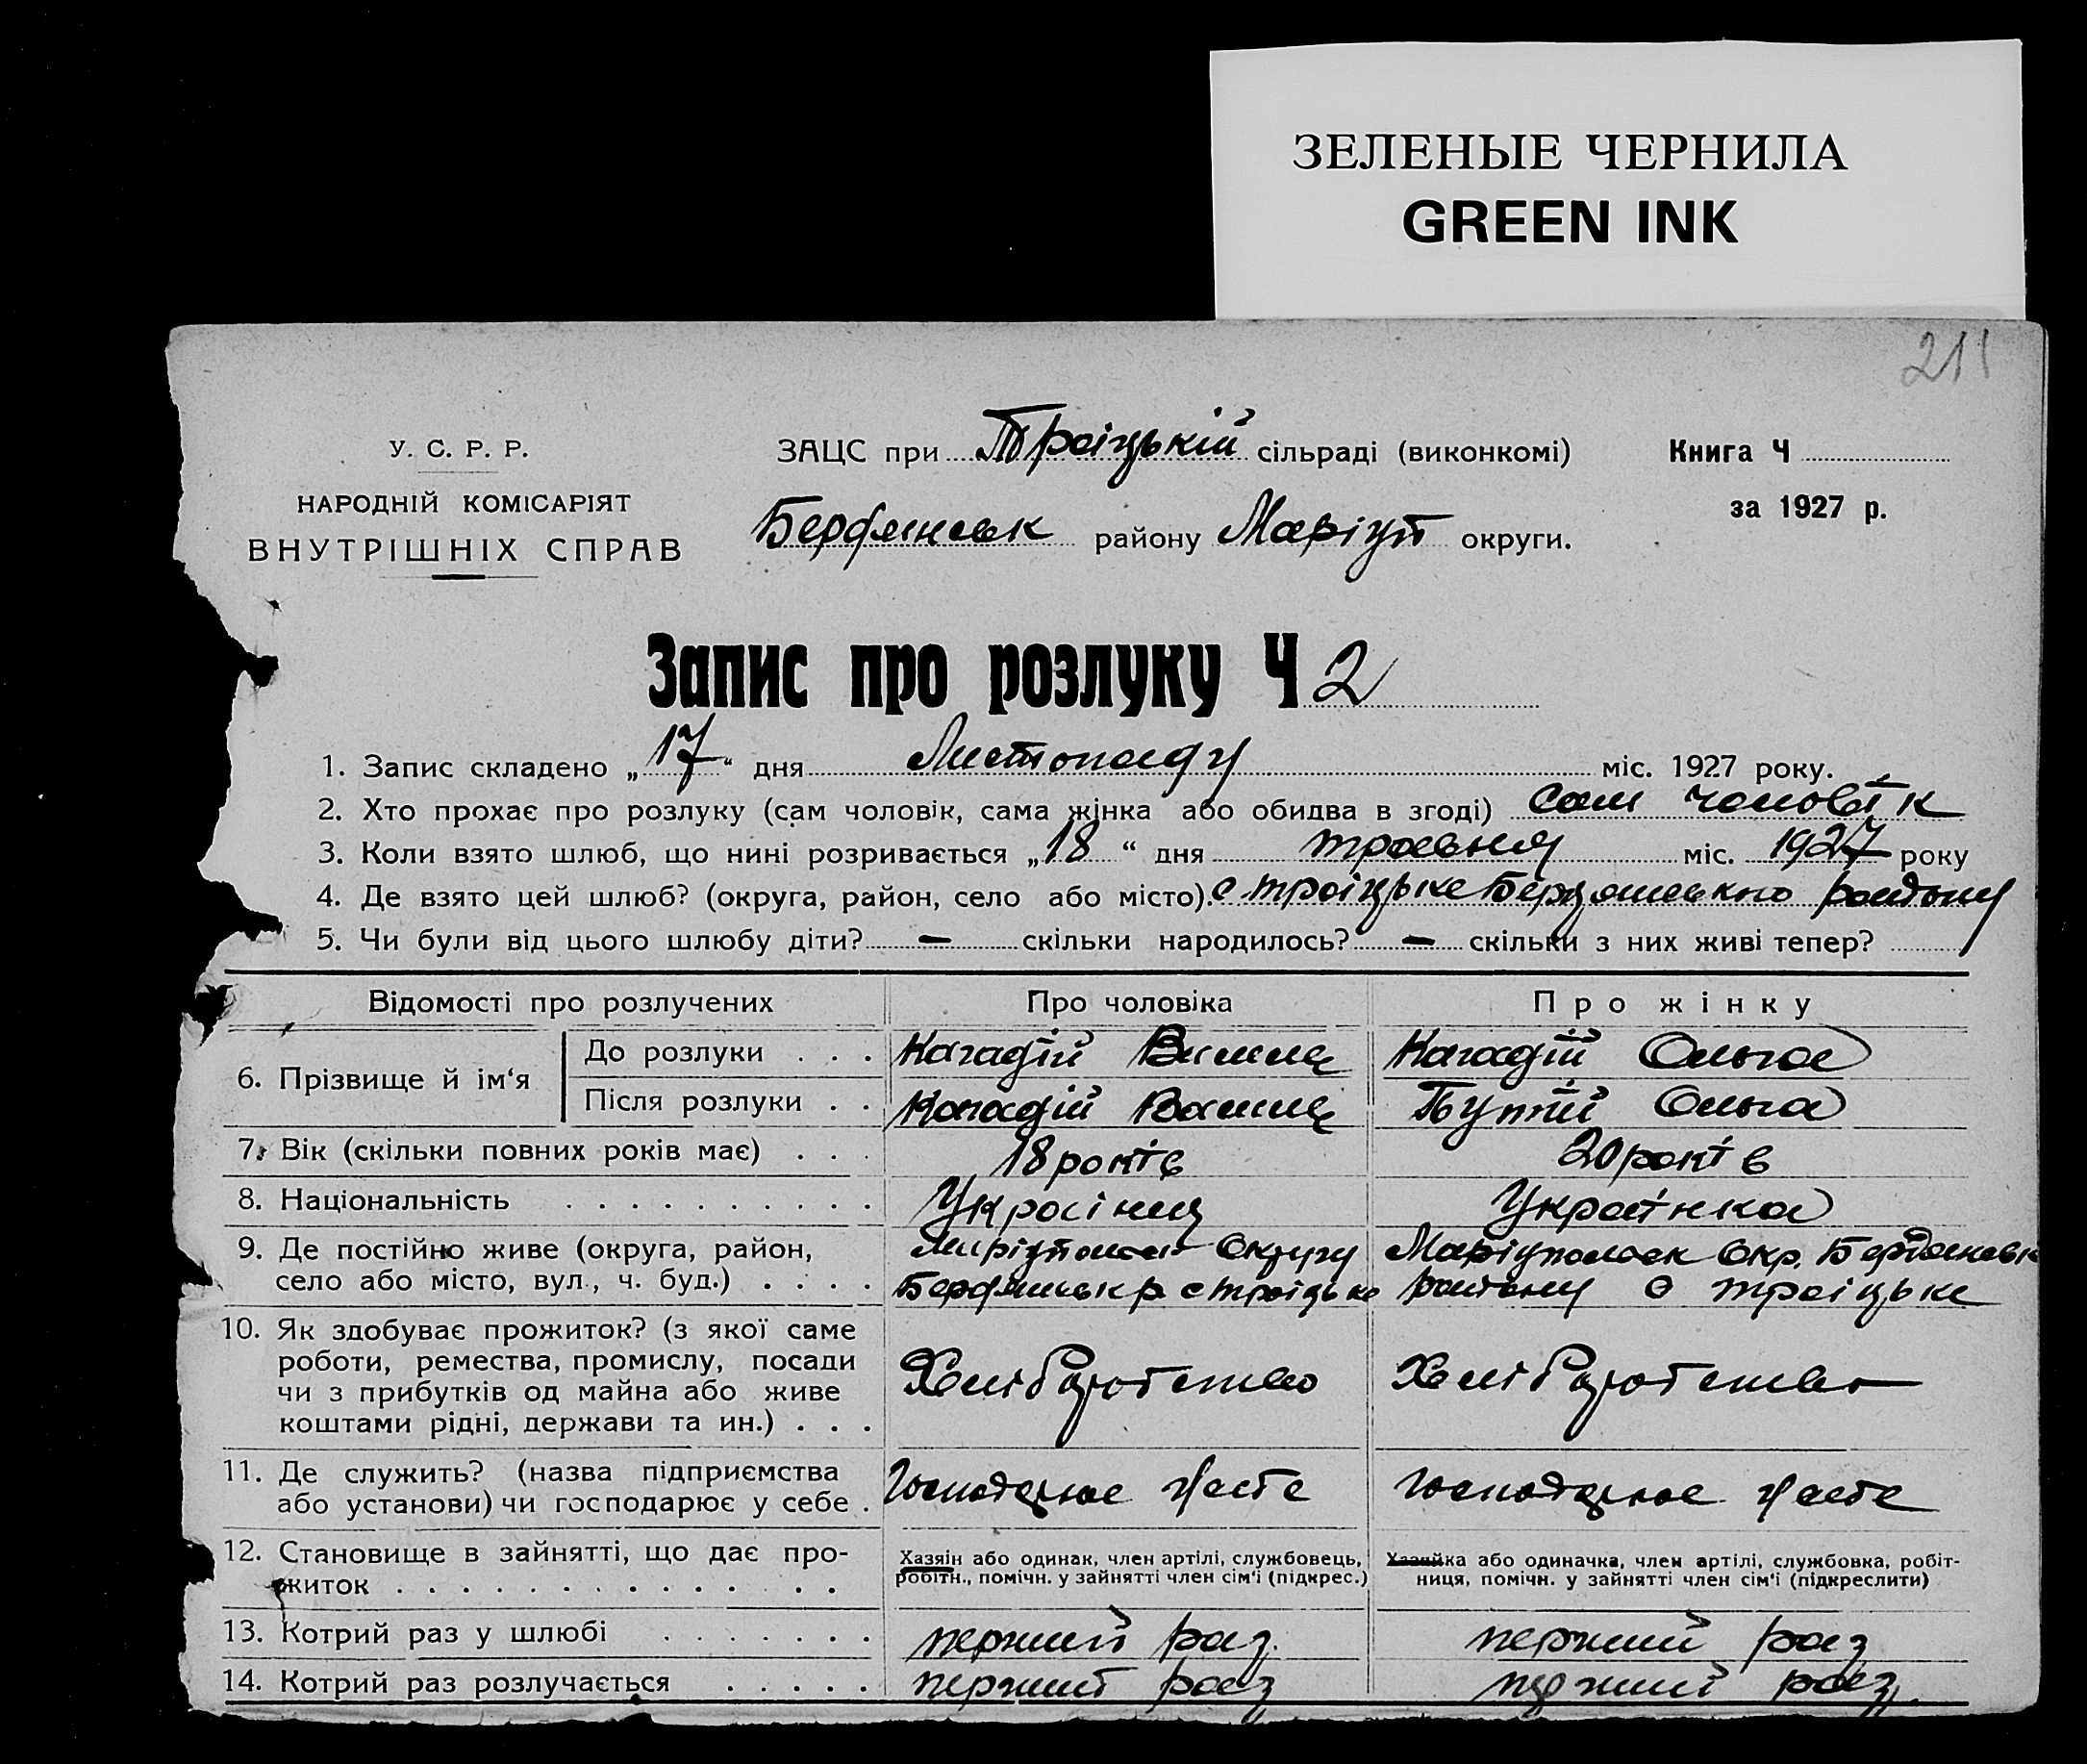 ЗЕЛЕНЫЕ ЧЕРНИЛА
GREEN INK
211
У. С. Р. Р.
НАРОДНІЙ КОМІСАРІЯТ
ВНУТРІШНІХ СПРАВ
ЗАЦС при Троіцькій сільраді (виконкомі)
Бердянськ району Маріуп округи.
Книга Ч
за 1927 р.
Запис про розлуку Ч 2
1. Запис складено „17“ дня Листопаду міс. 1927 року.
2. Хто прохає про розлуку (сам чоловік, сама жінка або обидва в згоді) сам чоловік
3. Коли взято шлюб, що нині розривається „18“ дня травня міс. 1927 року
4. Де взято цей шлюб? (округа, район, село або місто). с Троіцьке Бердянського району
5. Чи були від цього шлюбу діти? — скільки народилось? — скільки з них живі тепер?
Відомості про розлучених Про чоловіка Про жінку
6. Прізвище й ім‘я
До розлуки . . . Кагадій Ольга
Після розлуки . . Кагадій Ольга
7. Вік (скільки повних років має) . . . 18 років 20 років
8. Національність . . . . . . . . . . Украінец Украінка
9. Де постійно живе (округа, район, Округу Маріуполськ Окр. Бердянськ
село або місто, вул., ч. буд.) . . . . Бердянськ р с Троіцьке району с Троіцьке
10. Як здобуває прожиток? (з якої саме
роботи, ремества, промислу, посади
чи з прибутків од майна або живе
коштами рідні, держави та ин.) . . .
Хліборобство Хліборобство
11. Де служить? (назва підприємства
або установи) чи господарює у себе .
Господарює у себе Господарює у себе
12. Становище в зайнятті, що дає про-
житок . . . . . . . . . . . . . .
Хазяін або одинак, член артілі, службовець,
робітн., помічн. у зайнятті член сім‘ї (підкрес.)
Хазяйка або одиначка, член артілі, службовка, робіт-
ниця, помічн. у зайнятті член сім‘ї (підкреслити)
13. Котрий раз у шлюбі . . . . . . . перший раз. перший раз
14. Котрий раз розлучається . . . . . перший раз перший раз.